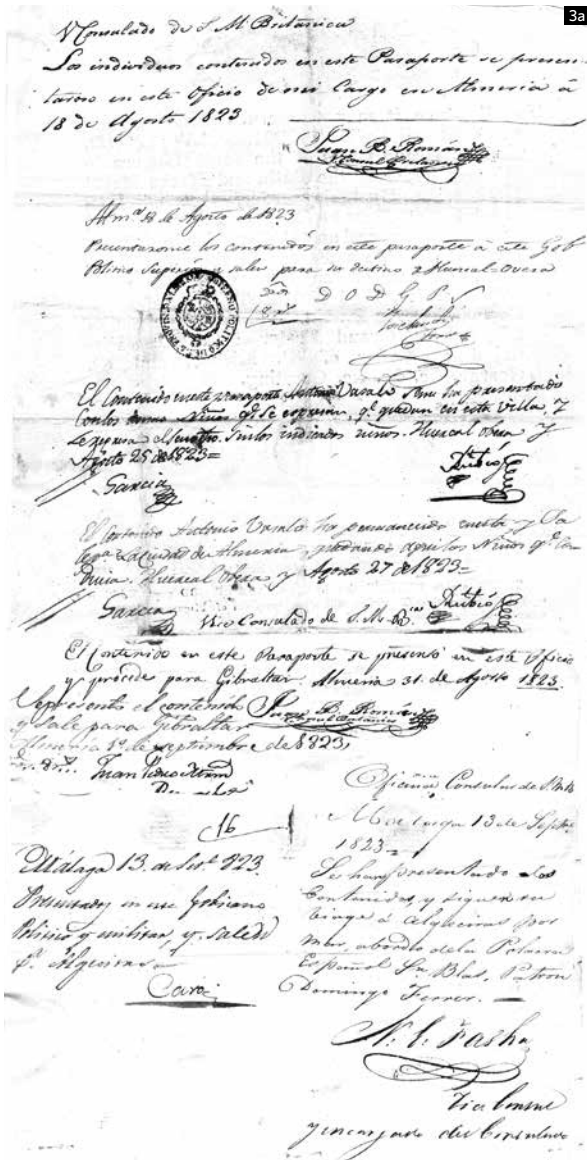 3a
VConsulado de S. M. Británica
Los individuos contenidos en este Pasaporte se presen-
taron en este Oficio de mi Cargo en Almeria á
18 de Agosto 1823
Juan B. Román
V.Consul Britanico
Alm.ª 18 de Agosto de 1823
Presentaronse los contenidos en este pasaporte á este Gob
Politico Superior y salen para su destino a Huercal-Overa
D O D G P S
El Contenido en este pasaporte Antonio Vasalo se me ha presentado
Con los Niños q.e se expresan, q.e quedan en esta Villa, y
Sin los indicados niños. Huercal obera y
Agosto 25 de 1823=
Garcia
Rubio
El Contenido Antonio Vasalo ha permanecido en esta y Sa
le p.ª la ciudad de Almeria, quedando aqui los Niños q.e Con
ducia. Huercal obera y Agosto 27 de 1823=
Garcia
Rubio
Vice Consulado de S. M. B.ca
El Contenido en este Pasaporte se presentó en este Oficio
y procede para Gibraltar. Almeria 31 de Agosto 1823.
Juan B. Román
V.Consul Británico
Se presentó el contenido
y Sale para Gibraltar
Almeria 1º de septiembre de 1823,
Juan
16
Málaga 13. de Set.e 823.
Presentados en este Gobierno
Politico y militar, y salen
p.ª Algeciras
Caro
Oficina Consular de S.M.B.
Malaga 13 de Septe
1823=
Se han presentado los
Contenidos, y siguen su
biage á Algeciras por
mar, abordo de la Polacra
Español Sn Blas, Patron
Domingo Ferrer.
Vice Consul
y encargado del Consulado